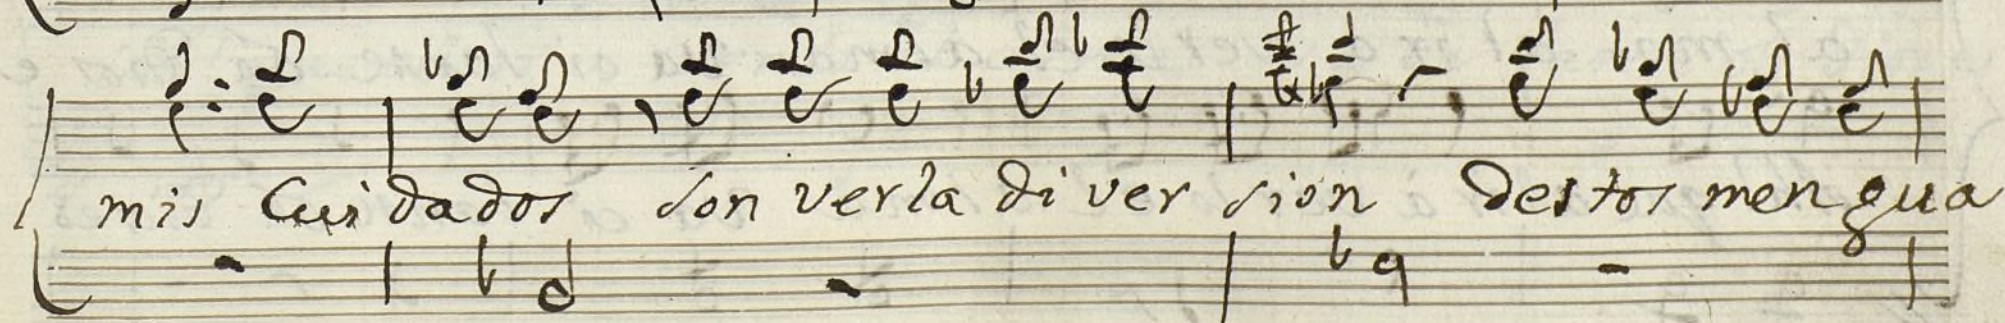 mis Cuidados son verla diversion destos mengua